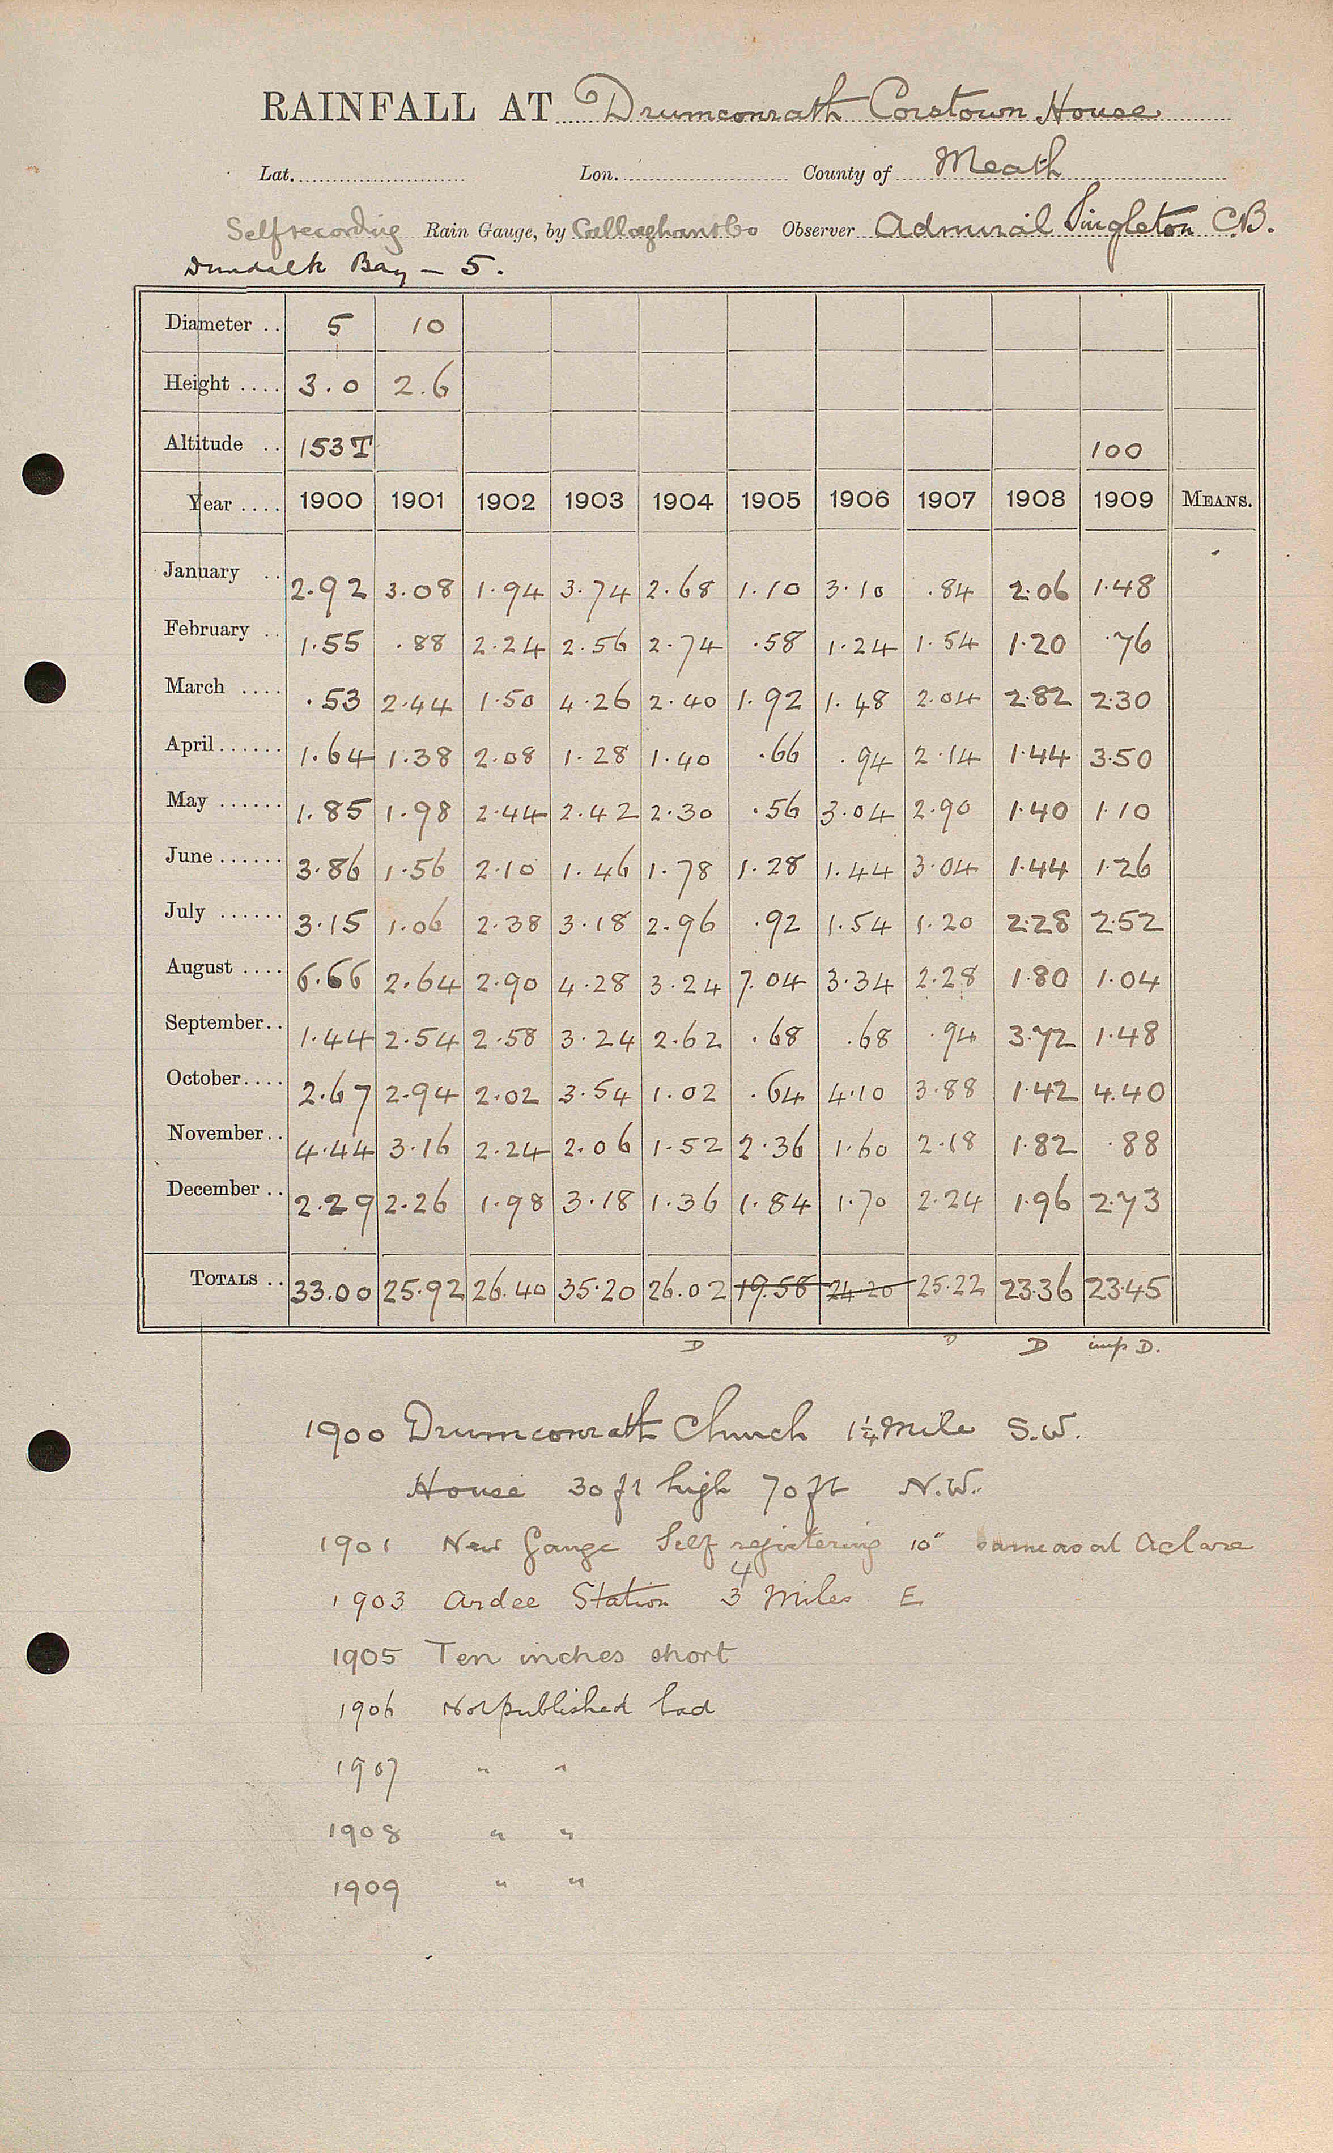 RAINFALL AT Drumconrath Corstown House
Lat. Lon. County of Meath
Self recording Rain Gauge, by Callaghan & Co Observer Admiral Singleton C.B.
Dundalk Bay – 5.
Diameter .. 5 10
Height .... 3.0 2.6
Altitude .. 153T 100
Year .... 1900 1901 1902 1903 1904 1905 1906 1907 1908 1909 MEANS.
January .. 2.92 3.08 1.94 3.74 2.68 1.10 3.10 .84 2.06 1.48
February .. 1.55 .88 2.24 2.56 2.74 .58 1.24 1.54 1.20 .76
March .... .53 2.44 1.50 4.26 2.40 1.92 1.48 2.04 2.82 2.30
April ...... 1.64 1.38 2.08 1.28 1.40 .66 .94 2.14 1.44 3.50
May ...... 1.85 1.98 2.44 2.42 2.30 .56 3.04 2.90 1.40 1.10
June ...... 3.86 1.56 2.10 1.46 1.78 1.28 1.44 3.04 1.44 1.26
July ...... 3.15 1.06 2.38 3.18 2.96 .92 1.54 1.20 2.28 2.52
August .... 6.66 2.64 2.90 4.28 3.24 7.04 3.34 2.28 1.80 1.04
September .. 1.44 2.54 2.58 3.24 2.62 .68 .68 .94 3.72 1.48
October .... 2.67 2.94 2.02 3.54 1.02 .64 4.10 3.88 1.42 4.40
November .. 4.44 3.16 2.24 2.06 1.52 2.36 1.60 2.18 1.82 .88
December .. 2.29 2.26 1.98 3.18 1.36 1.84 1.70 2.24 1.96 2.73
TOTALS .. 33.00 25.92 26.40 35.20 26.02 19.58 24.20 25.22 23.36 23.45
D D D imp D.
1900 Drumconrath Church 1¼ Mile S.W.
House 30 ft high 70 ft N.W.
1901 New Gauge Self registering 10" same as at Aclare
4
1903 Ardee Station 3 Miles E
1905 Ten inches short
1906 Not published bad
1907 " "
1908 " "
1909 " "